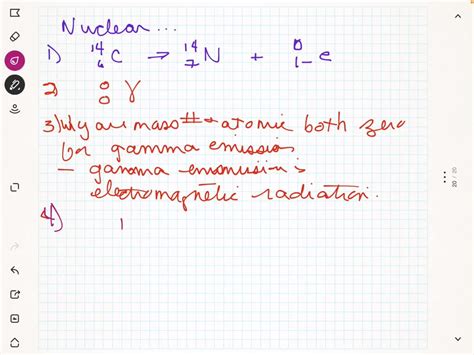 Nuclear...
1) ¹⁴₆C → ¹⁴₇N + ⁰₁₋e
2) ⁰₀γ
3) Why are mass # + atomic both zero
for gamma emission
- gamma emission is
electromagnetic radiation.
4) 1
20 / 20